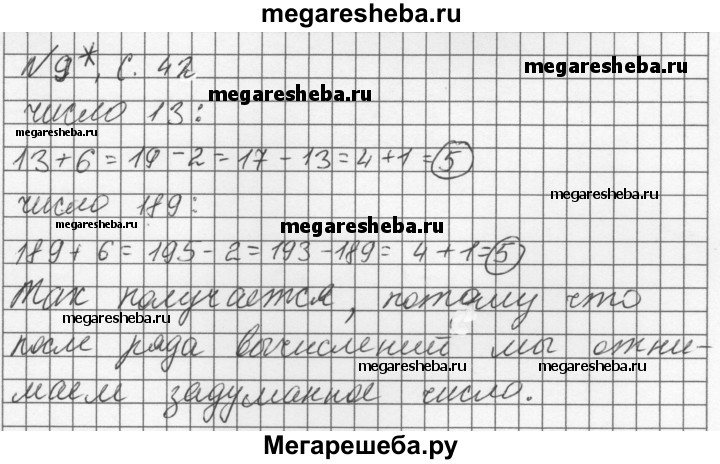 megaresheba.ru
N 9*, с. 42
megaresheba.ru
megaresheba.ru
число 13:
megaresheba.ru
13+6=19-2=17-13=4+1=5
megaresheba.ru
число 189:
megaresheba.ru
megaresheba.ru
189+6=195-2=193-189=4+1=5
Так получается, потому что
megaresheba.ru
после ряда вычислений мы отни-
megaresheba.ru
megaresheba.ru
маем задуманное число.
Мегарешеба.ру